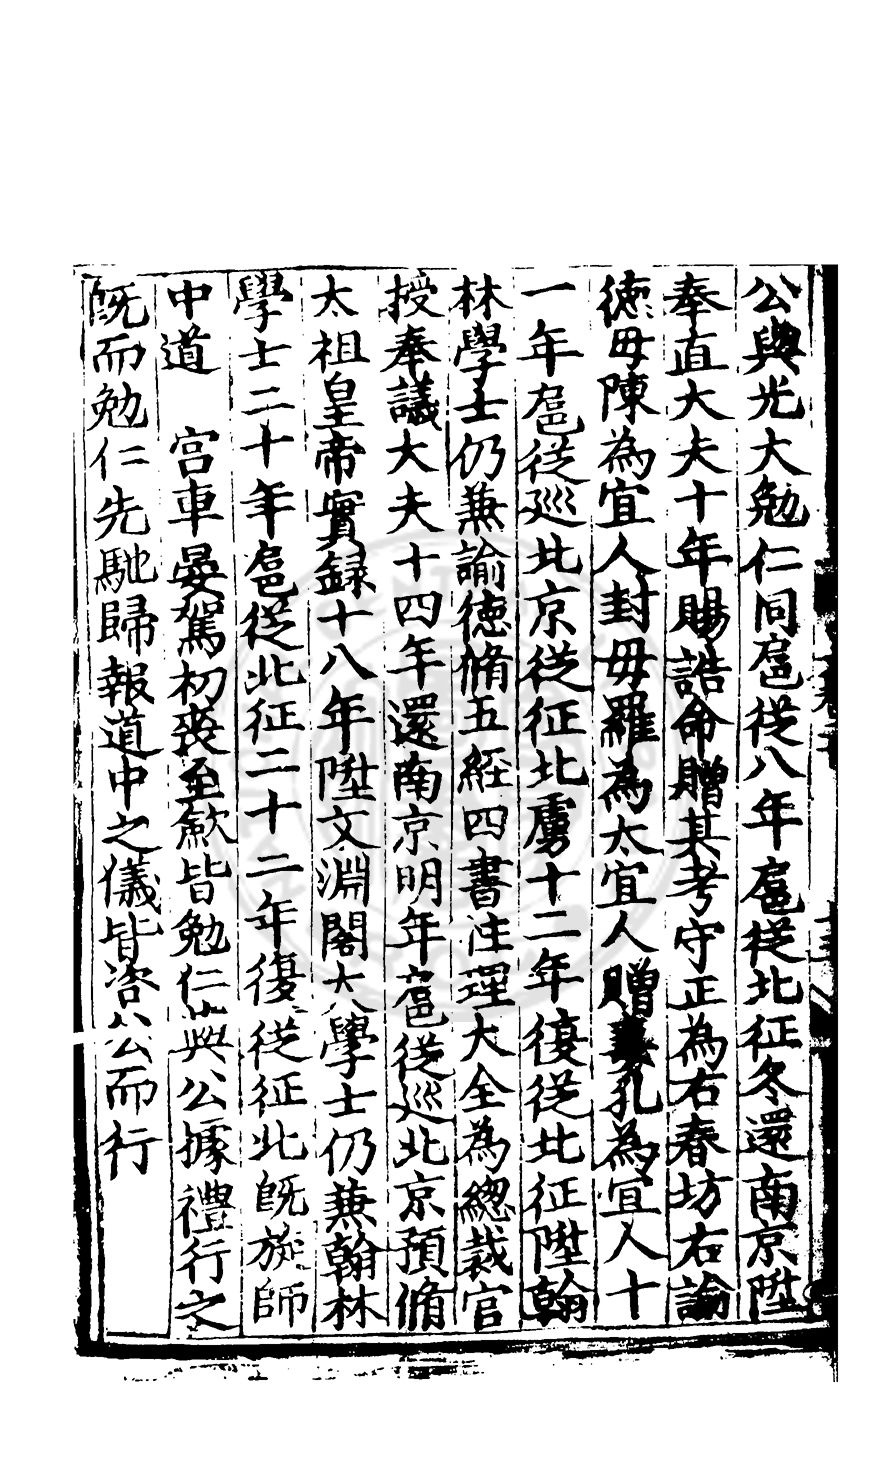 公與光大勉仁同扈從八年扈從北征冬還南京陞
奉直大夫十年賜誥命贈其考守正為右春坊右諭
德毋陳為宜人封毋羅為太宜人贈妻孔為宜人十
一年扈從巡北京從征北虜十二年復從北征陞翰
林學士仍兼諭德脩五經四書性理大全為總裁官
授奉議大夫十四年還南京明年扈從巡北京預脩
太祖皇帝實録十八年陞文淵閣大學士仍兼翰林
學士二十年扈從北征二十二年復從征北既旋師
中道　宮車晏駕初喪至歛皆勉仁與公據禮行之
既而勉仁先馳歸報道中之儀皆咨公而行